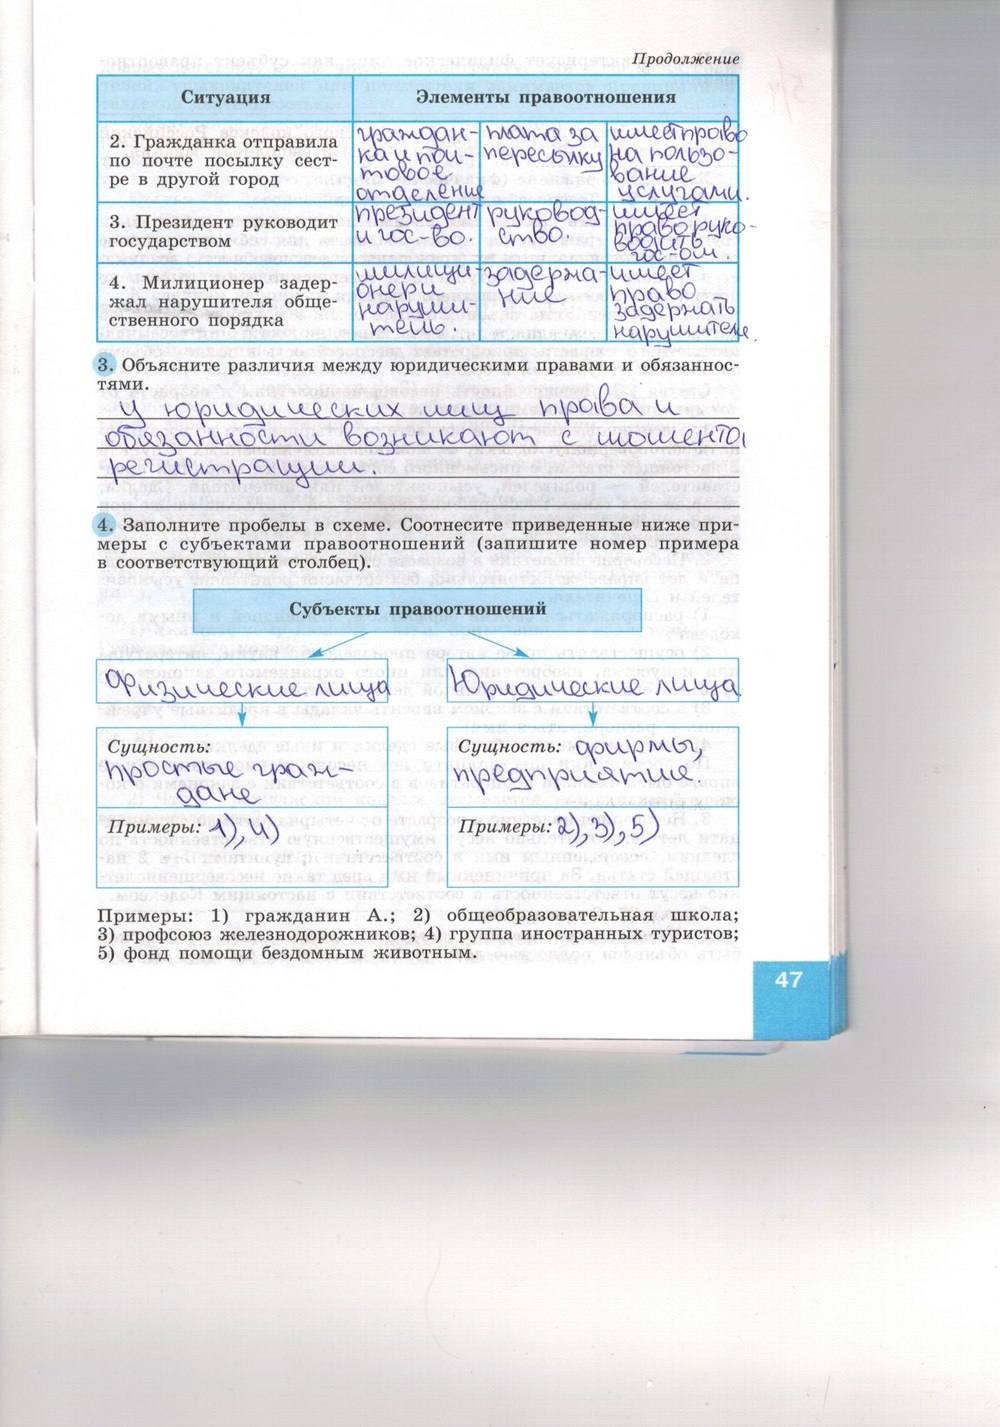 Продолжение
Ситуация
Элементы правоотношения
2. Гражданка отправила
по почте посылку сест-
ре в другой город
граждан-
ка и поч-
товое
отделение
плата за
пересылку
имеет право
на пользо-
вание
услугами.
3. Президент руководит
государством
президент
и гос-во.
руковод-
ство.
имеет
право руко-
водить
гос-ом.
4. Милиционер задер-
жал нарушителя обще-
ственного порядка
милици-
онер и
наруши-
тель.
задержа-
ние
имеет
право
задержать
нарушителя.
3. Объясните различия между юридическими правами и обязаннос-
тями.
у юридических лиц права и
обязанности возникают с момента
регистрации.
4. Заполните пробелы в схеме. Соотнесите приведенные ниже при-
меры с субъектами правоотношений (запишите номер примера
в соответствующий столбец).
Субъекты правоотношений
Физические лица
Юридические лица
Сущность:
простые граж-
дане
Примеры: 1), 4)
Сущность: фирмы,
предприятие.
Примеры: 2), 3), 5)
Примеры: 1) гражданин А.; 2) общеобразовательная школа;
3) профсоюз железнодорожников; 4) группа иностранных туристов;
5) фонд помощи бездомным животным.
47